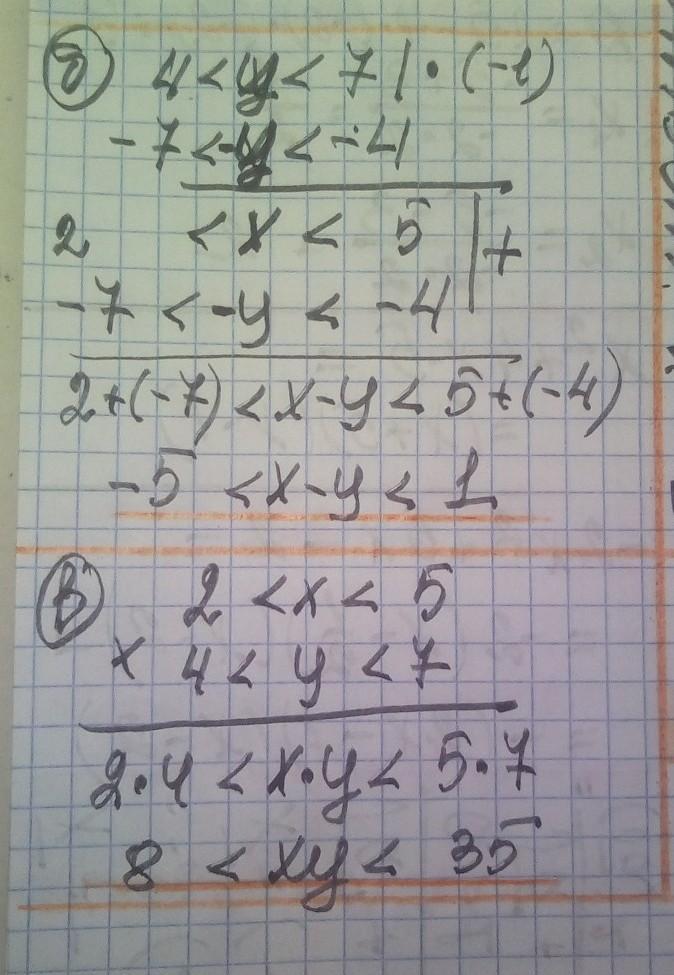 б) 4 < y < 7 | · (-1)
-7 < -y < -4
2 < x < 5 | +
-7 < -y < -4
2+(-7) < x-y < 5+(-4)
-5 < x-y < 1
в) 2 < x < 5
× 4 < y < 7
2·4 < x·y < 5·7
8 < xy < 35